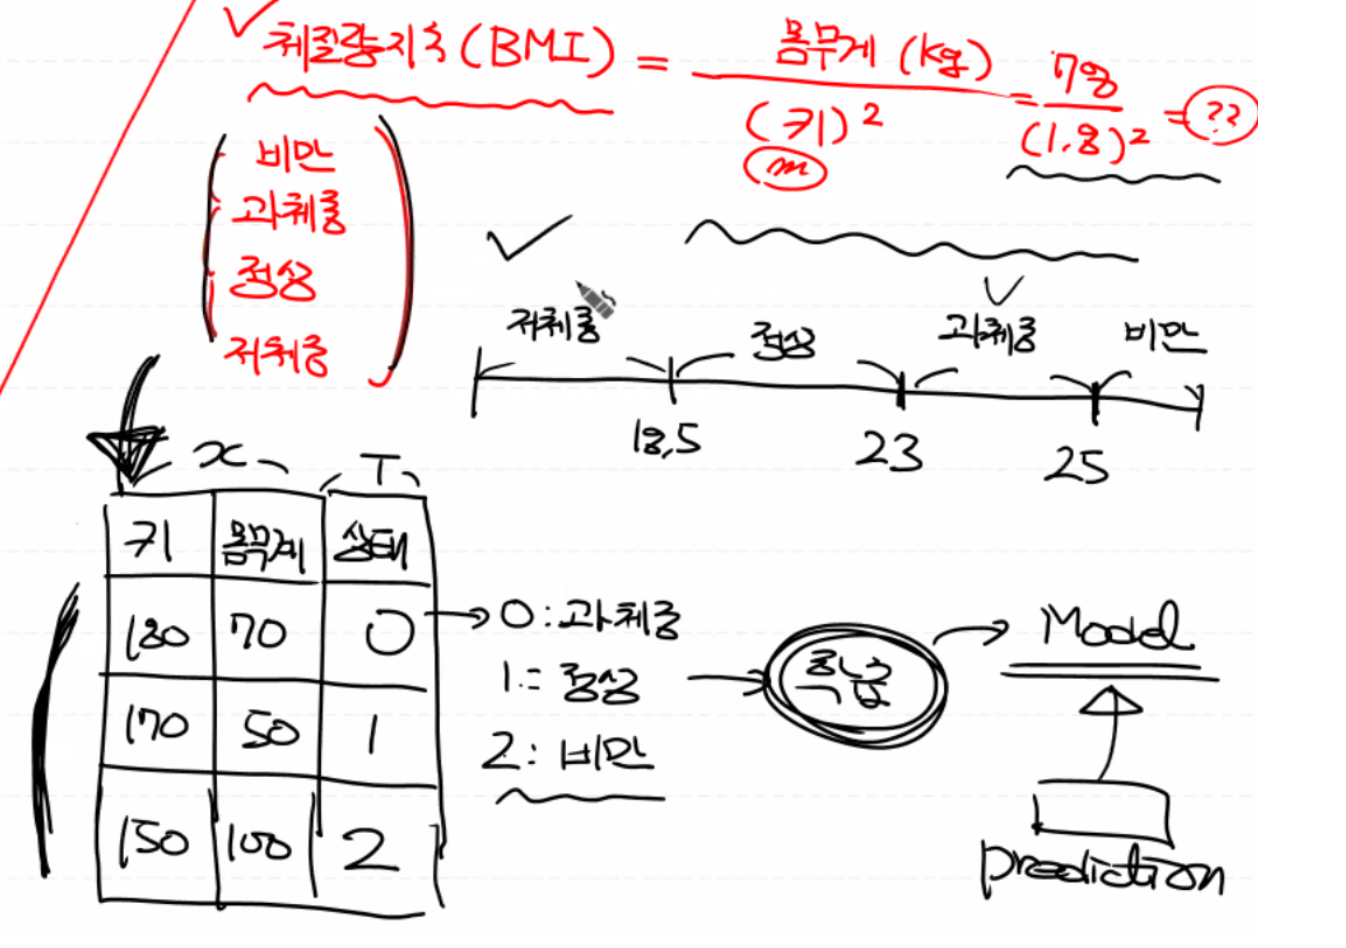 체질량지수(BMI) = 몸무게 (kg) / (키)² = 78 / (1.8)² = ??
m
비만
과체중
정상
저체중
저체중 정상 과체중 비만
18.5 23 25
x T
키 몸무게 상태
180 70 0 → 0: 과체중
170 50 1 1: 정상
150 100 2 2: 비만
학습 → Model
prediction